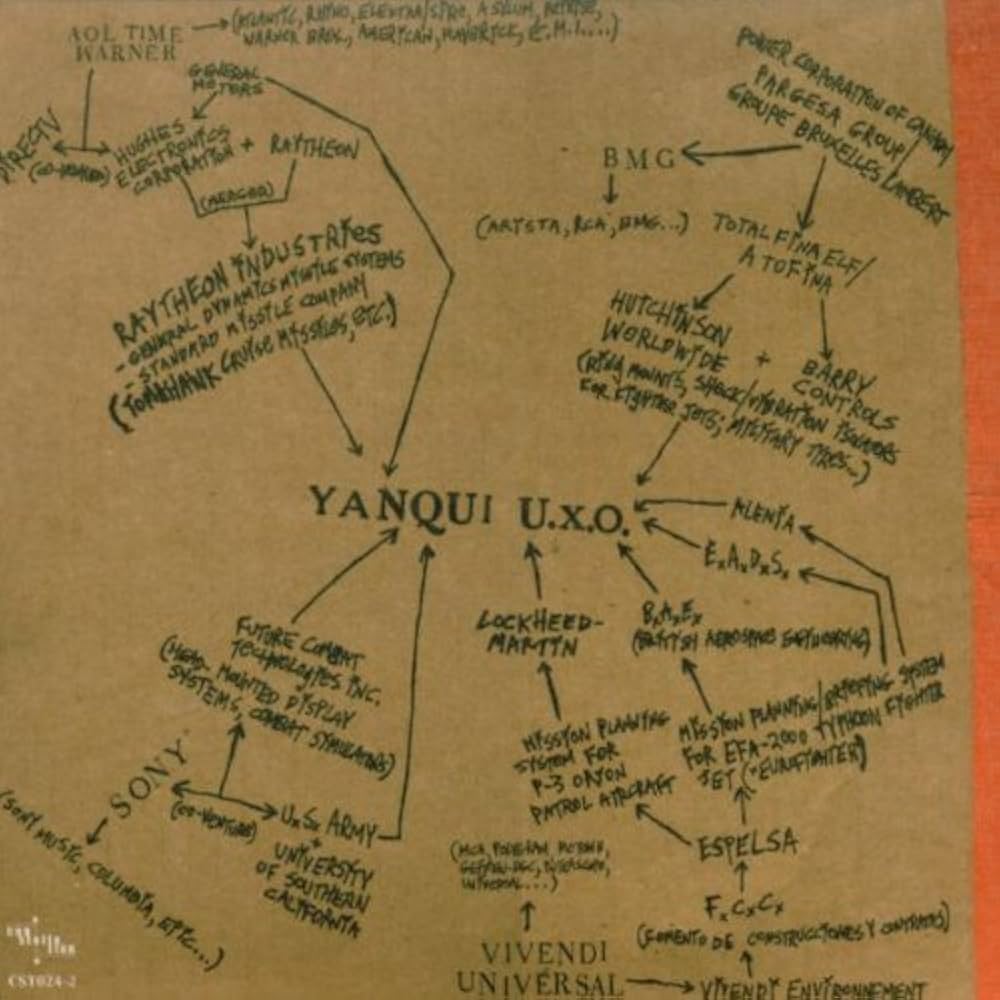 AOL TIME
WARNER
(ATLANTIC, RHINO, ELEKTRA/SIRE, ASYLUM, REPRISE,
WARNER BROS., AMERICAN, MAVERICK, E.M.I....)
GENERAL
MOTORS
DIRECTV
(CO-OWNED)
HUGHES
ELECTRONICS
CORPORATION
+
RAYTHEON
(MERGER)
RAYTHEON INDUSTRIES
- GENERAL DYNAMICS MISSILE SYSTEMS
- STANDARD MISSILE COMPANY
(TOMAHAWK CRUISE MISSILES, ETC.)
POWER CORPORATION OF CANADA/
PARGESA GROUP/
GROUPE BRUXELLES LAMBERT
BMG
(ARISTA, RCA, BMG...)
TOTALFINAELF/
ATOFINA
HUTCHINSON
WORLDWIDE
+
BARRY
CONTROLS
MOUNTS, SHOCK/VIBRATION ISOLATORS
FOR FIGHTER JETS; MILITARY TIRES...)
YANQUI U.X.O.
ALENIA
E.A.D.S.
LOCKHEED-
MARTIN
B.A.E.
(BRITISH AEROSPACE ENGINEERING)
FUTURE COMBAT
TECHNOLOGIES INC.
(HEAD-MOUNTED DISPLAY
SYSTEMS, COMBAT SIMULATORS)
MISSION PLANNING
SYSTEM FOR
P-3 ORION
PATROL AIRCRAFT
MISSION PLANNING/BRIEFING SYSTEM
FOR EFA-2000 TYPHOON FIGHTER
JET ("EUROFIGHTER)
SONY
(CO-VENTURE)
(SONY MUSIC, COLUMBIA, EPIC...)
U.S. ARMY
+
UNIVERSITY
OF SOUTHERN
CALIFORNIA
ESPELSA
F.C.C.
(FOMENTO DE CONSTRUCCIONES Y CONTRATAS)
(MCA, POLYGRAM, MOTOWN,
GEFFEN/DGC, INTERSCOPE,
UNIVERSAL...)
VIVENDI
UNIVERSAL
VIVENDI ENVIRONNEMENT
CST024-2